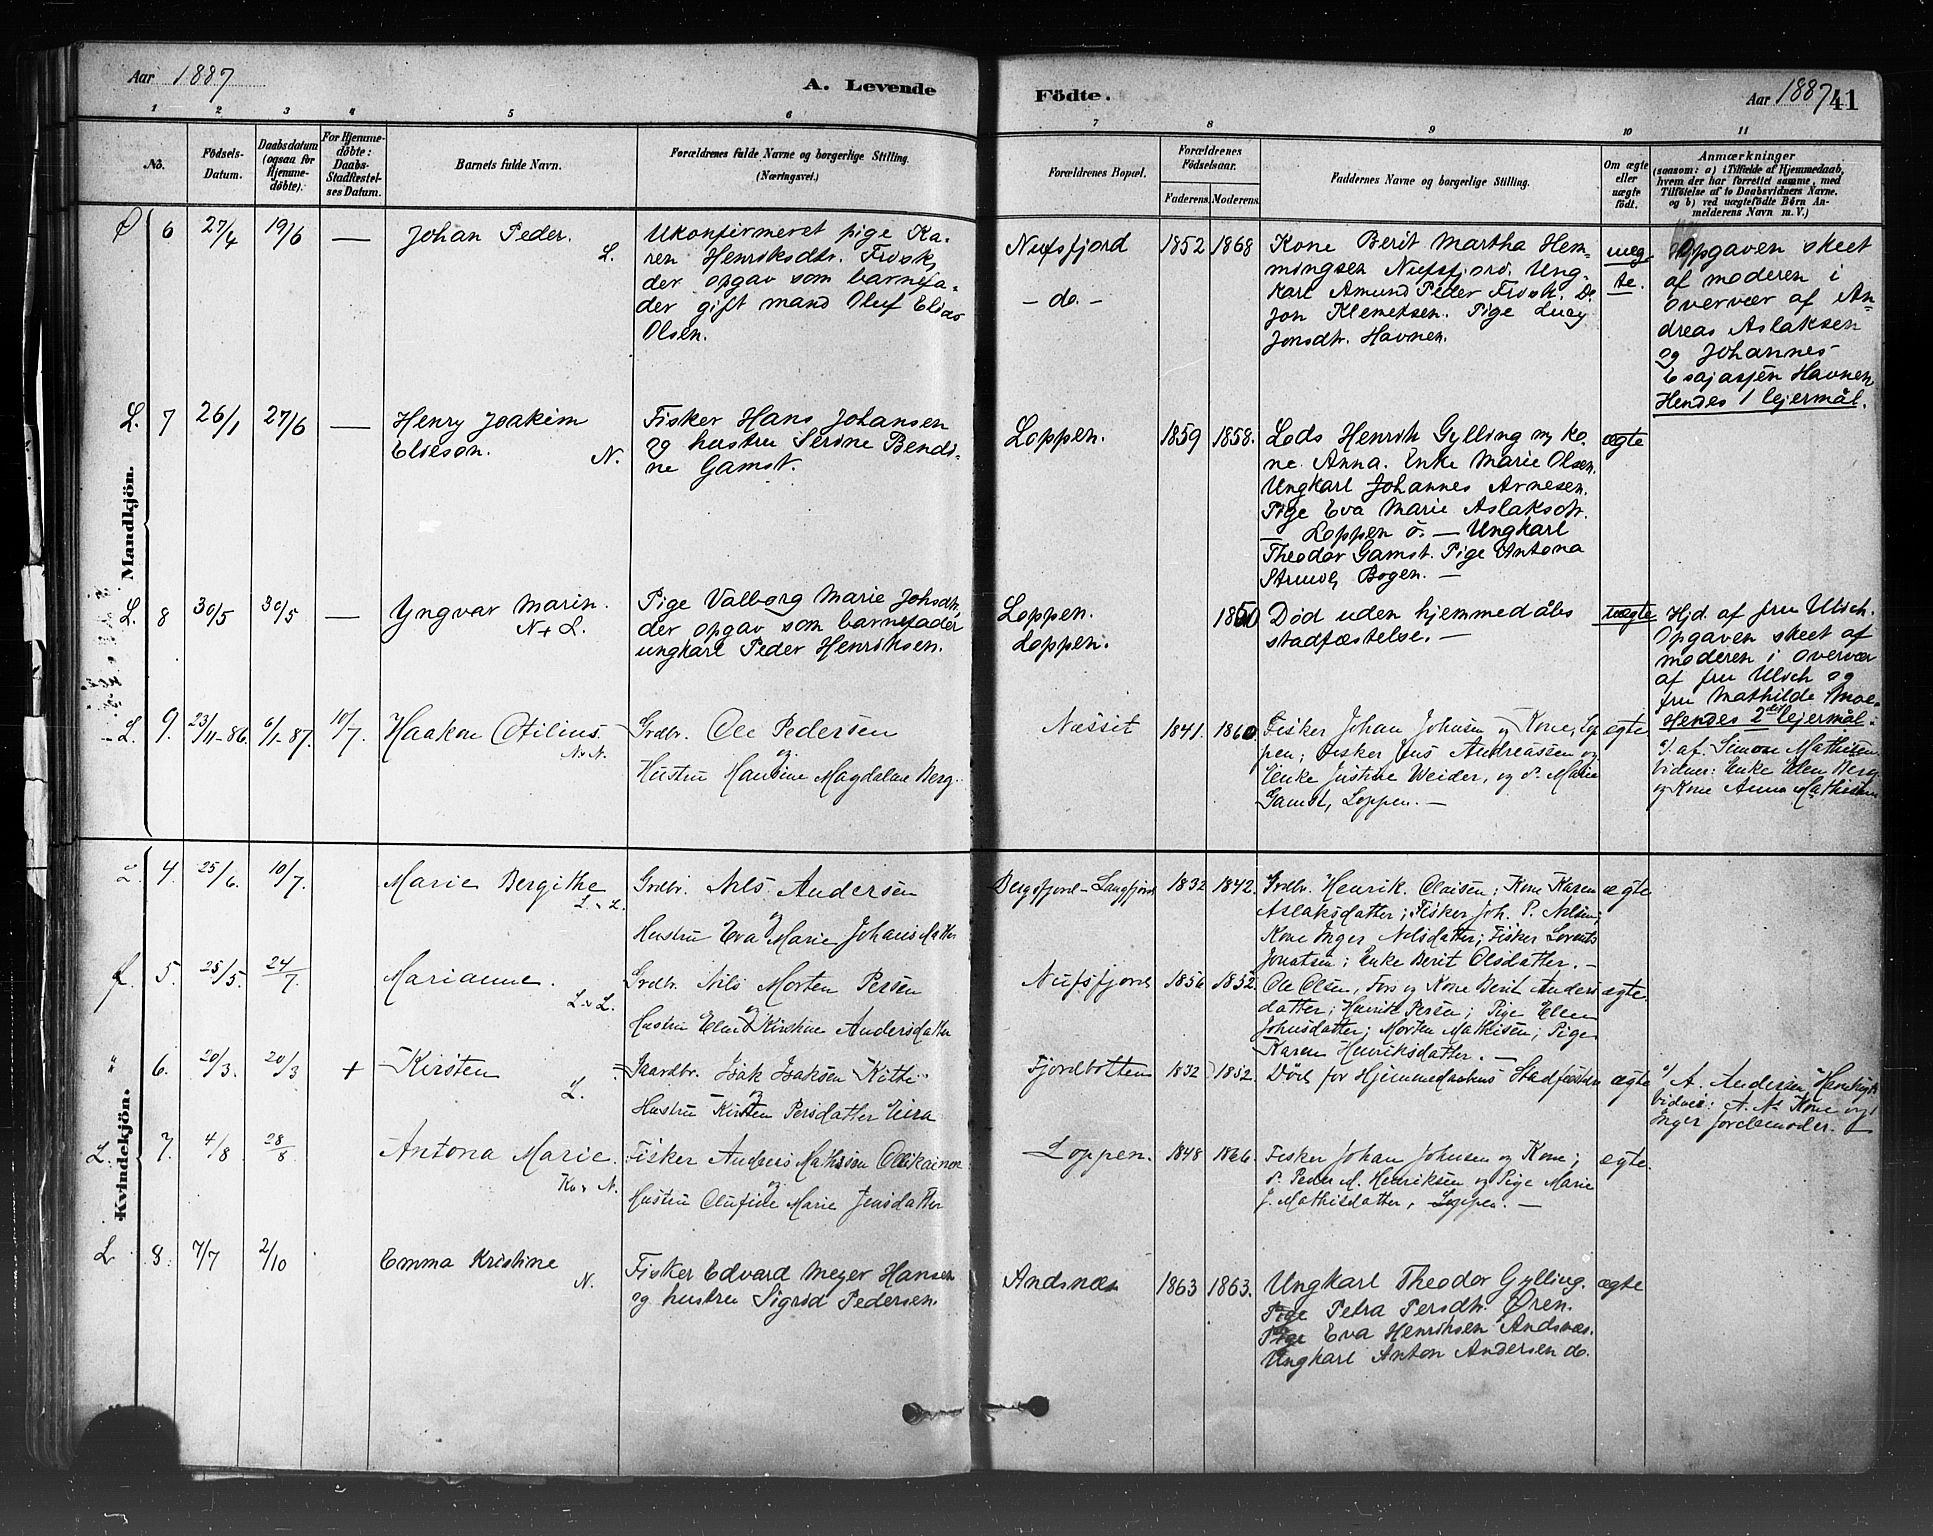 Aar 1887
A. Levende
Födte.
Aar 1887 41
1 2 3 4 5 6 7 8 9 10 11
No.
Födsels-
Datum.
Daabsdatum
(ogsaa for
Hjemme-
döbte).
For Hjemme-
döbte:
Daabs-
Stadfæstel-
ses Datum.
Barnets fulde Navn.
Forældrenes fulde Navne og borgerlige Stilling.
(Næringsvei.)
Forældrenes Bopæl.
Forældrenes
Födselsaar.
Faderens. Moderens.
Faddernes Navne og borgerlige Stilling.
Om ægte
eller
uægte
födt.
Anmærkninger
(saasom: a) i Tilfælde af Hjemmedaab,
hvem der har forrettet samme, med
Tilföielse af to Daabsvidners Navne,
og b) ved uægtefödte Börn An-
melderens Navn m. V.)
Mandkjön.
6 27/4 19/6 —
Johan Peder.
L.
Ukonfirmeret pige Ka-
ren Henriksdtr. Frosk,
der opgav som barnefa-
der gift mand Oluf Elias
Olsen.
Nufsfjord
— do. —
1852 1868
Kone Berit Martha Hem-
mingsen Nufsfjord. Ung-
karl Amund Peder Frosk. Do
Jon Klemetsen. Pige Lucy
Jonsdtr. Havnen.
uæg-
te.
Opgaven skeet
af moderen i
overvær af An-
dreas Aslaksen
og Johannes
Esajasjen Havnen
Hendes 1 lejermål.
L. 7 26/1 27/6 —
Henry Joakim
Elieson.
N.
Fisker Hans Johansen
og hustru Serine Bendi-
ne Gamst.
Loppen.
1859 1858.
Lods Henrik Gylling m ko-
ne Anna. Enke Marie Olsen.
Ungkarl Johannes Arnesen.
Pige Eva Marie Aslaksdtr.
— Loppen ö. — Ungkarl
Theodor Gamst. Pige Antona
Struve, Bogen. —
ægte
L. 8 30/5 30/5 —
Yngvar Marin.
N + L.
Pige Valborg Marie Johsdtr.
der opgav som barnefader
ungkarl Peder Henriksen.
Loppen.
Loppen.
1850
Död uden hjemmedåbs
stadfæstelse. —
uægte
Hjd. af fru Ulich.
Opgaven skeet af
moderen i overvær
af fru Ulich og
fru Mathilde Moe.
Hendes 2det lejermål.
L. 9. 23/11-86. 6/1-87. 10/7.
Haakon Otilius.
N. N.
Grdbr. Ole Pedersen
og
Hustru Hansine Magdalene Berg.
Nasset
1841. 1860
Fisker Johan Johnsen og Kone, Lop-
pen; Fisker Jens Andreassen og
Enke Justine Weider, og P. Marie
Gamst, Loppen. —
ægte
af Simon Mathisen
Vidner: Enke Elen Berg
og Kone Anna Mathisen
Kvindekjön.
L. 4. 25/6. 10/7.
Marie Bergithe
L. L.
Grdbr. Nils Andersen
og
Hustru Eva Marie Johansdatter
Bergsfjord-Langfjord
1832 1842.
Grdbr. Henrik Olaisen; Kone Karen
Aslaksdatter; Fisker Joh. P. Nilsen;
Kone Inger Nilsdatter; Fisker Lorents
Jonatsen; Enke Berit Olsdatter. —
ægte
5. 25/5. 24/7
Marianne.
L. L.
Grdbr. Nils Morten Persen
og
Hustru Elen Kirstine Andersdatter
Nufsfjord
1856 1852.
Ole Olsen, Fors og Kone Berit Anders
datter; Henrik Persen; Pige Elen
Johnsdatter; Morten Mathisen; Pige
Karen Henriksdatter. —
ægte
" 6. 20/3. 20/3 +
Kirsten
L.
Gaardbr. Isak Isaksen Kitti
og
Hustru Kirsten Persdatter Eira
Fjordbotten
1832 1852.
Död för Hjemmedaabens Stadfæstelse
ægte
A. Andersen
Vidner: A. Ns Kone og
Inger Jordemoder.
L. 7. 4/8 28/8
Antona Marie.
Kv. N.
Fisker Anders Mathisen Ollikainen
og
Hustru Olufine Marie Jensdatter
Loppen.
1848 1866.
Fisker Johan Johnsen og Kone;
P. Peder M. Henriksen og Pige Marie
J. Mathisdatter, Loppen. —
ægte.
L 8. 7/7 2/10
Emma Kristine
N.
Fisker Edvard Meyer Hansen
og hustru Sigrid Pedersen.
Andsnæs
1863 1863.
Ungkarl Theodor Gylling.
Pige Petra Persdtr. Øren.
Pige Eva Henriksen Andsnæs.
Ungkarl Anton Andersen do.
ægte